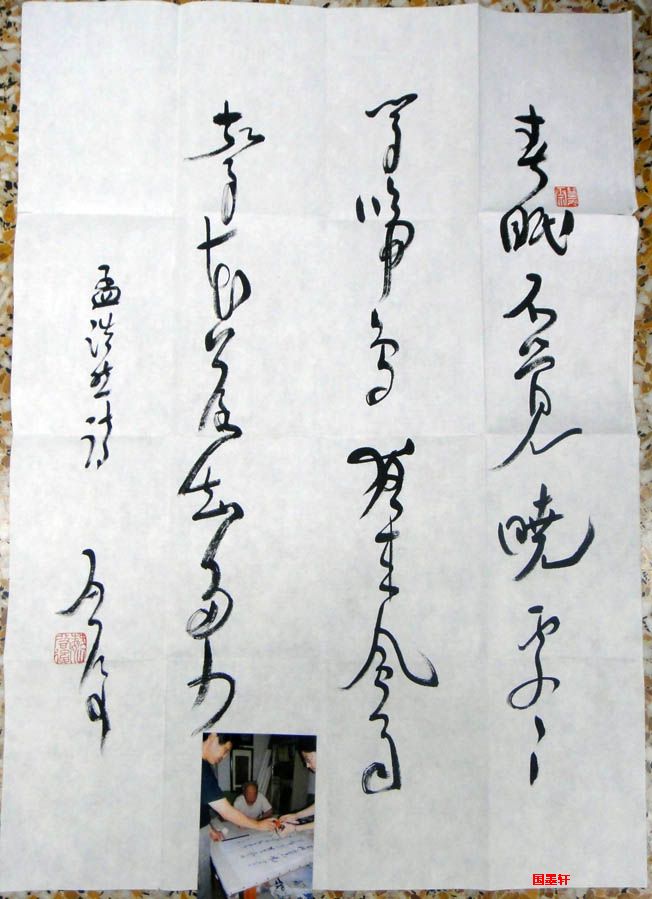 春眠不覺曉處〻
聞啼鳥夜來風雨
聲花落知多少
孟浩然詩
国墨轩